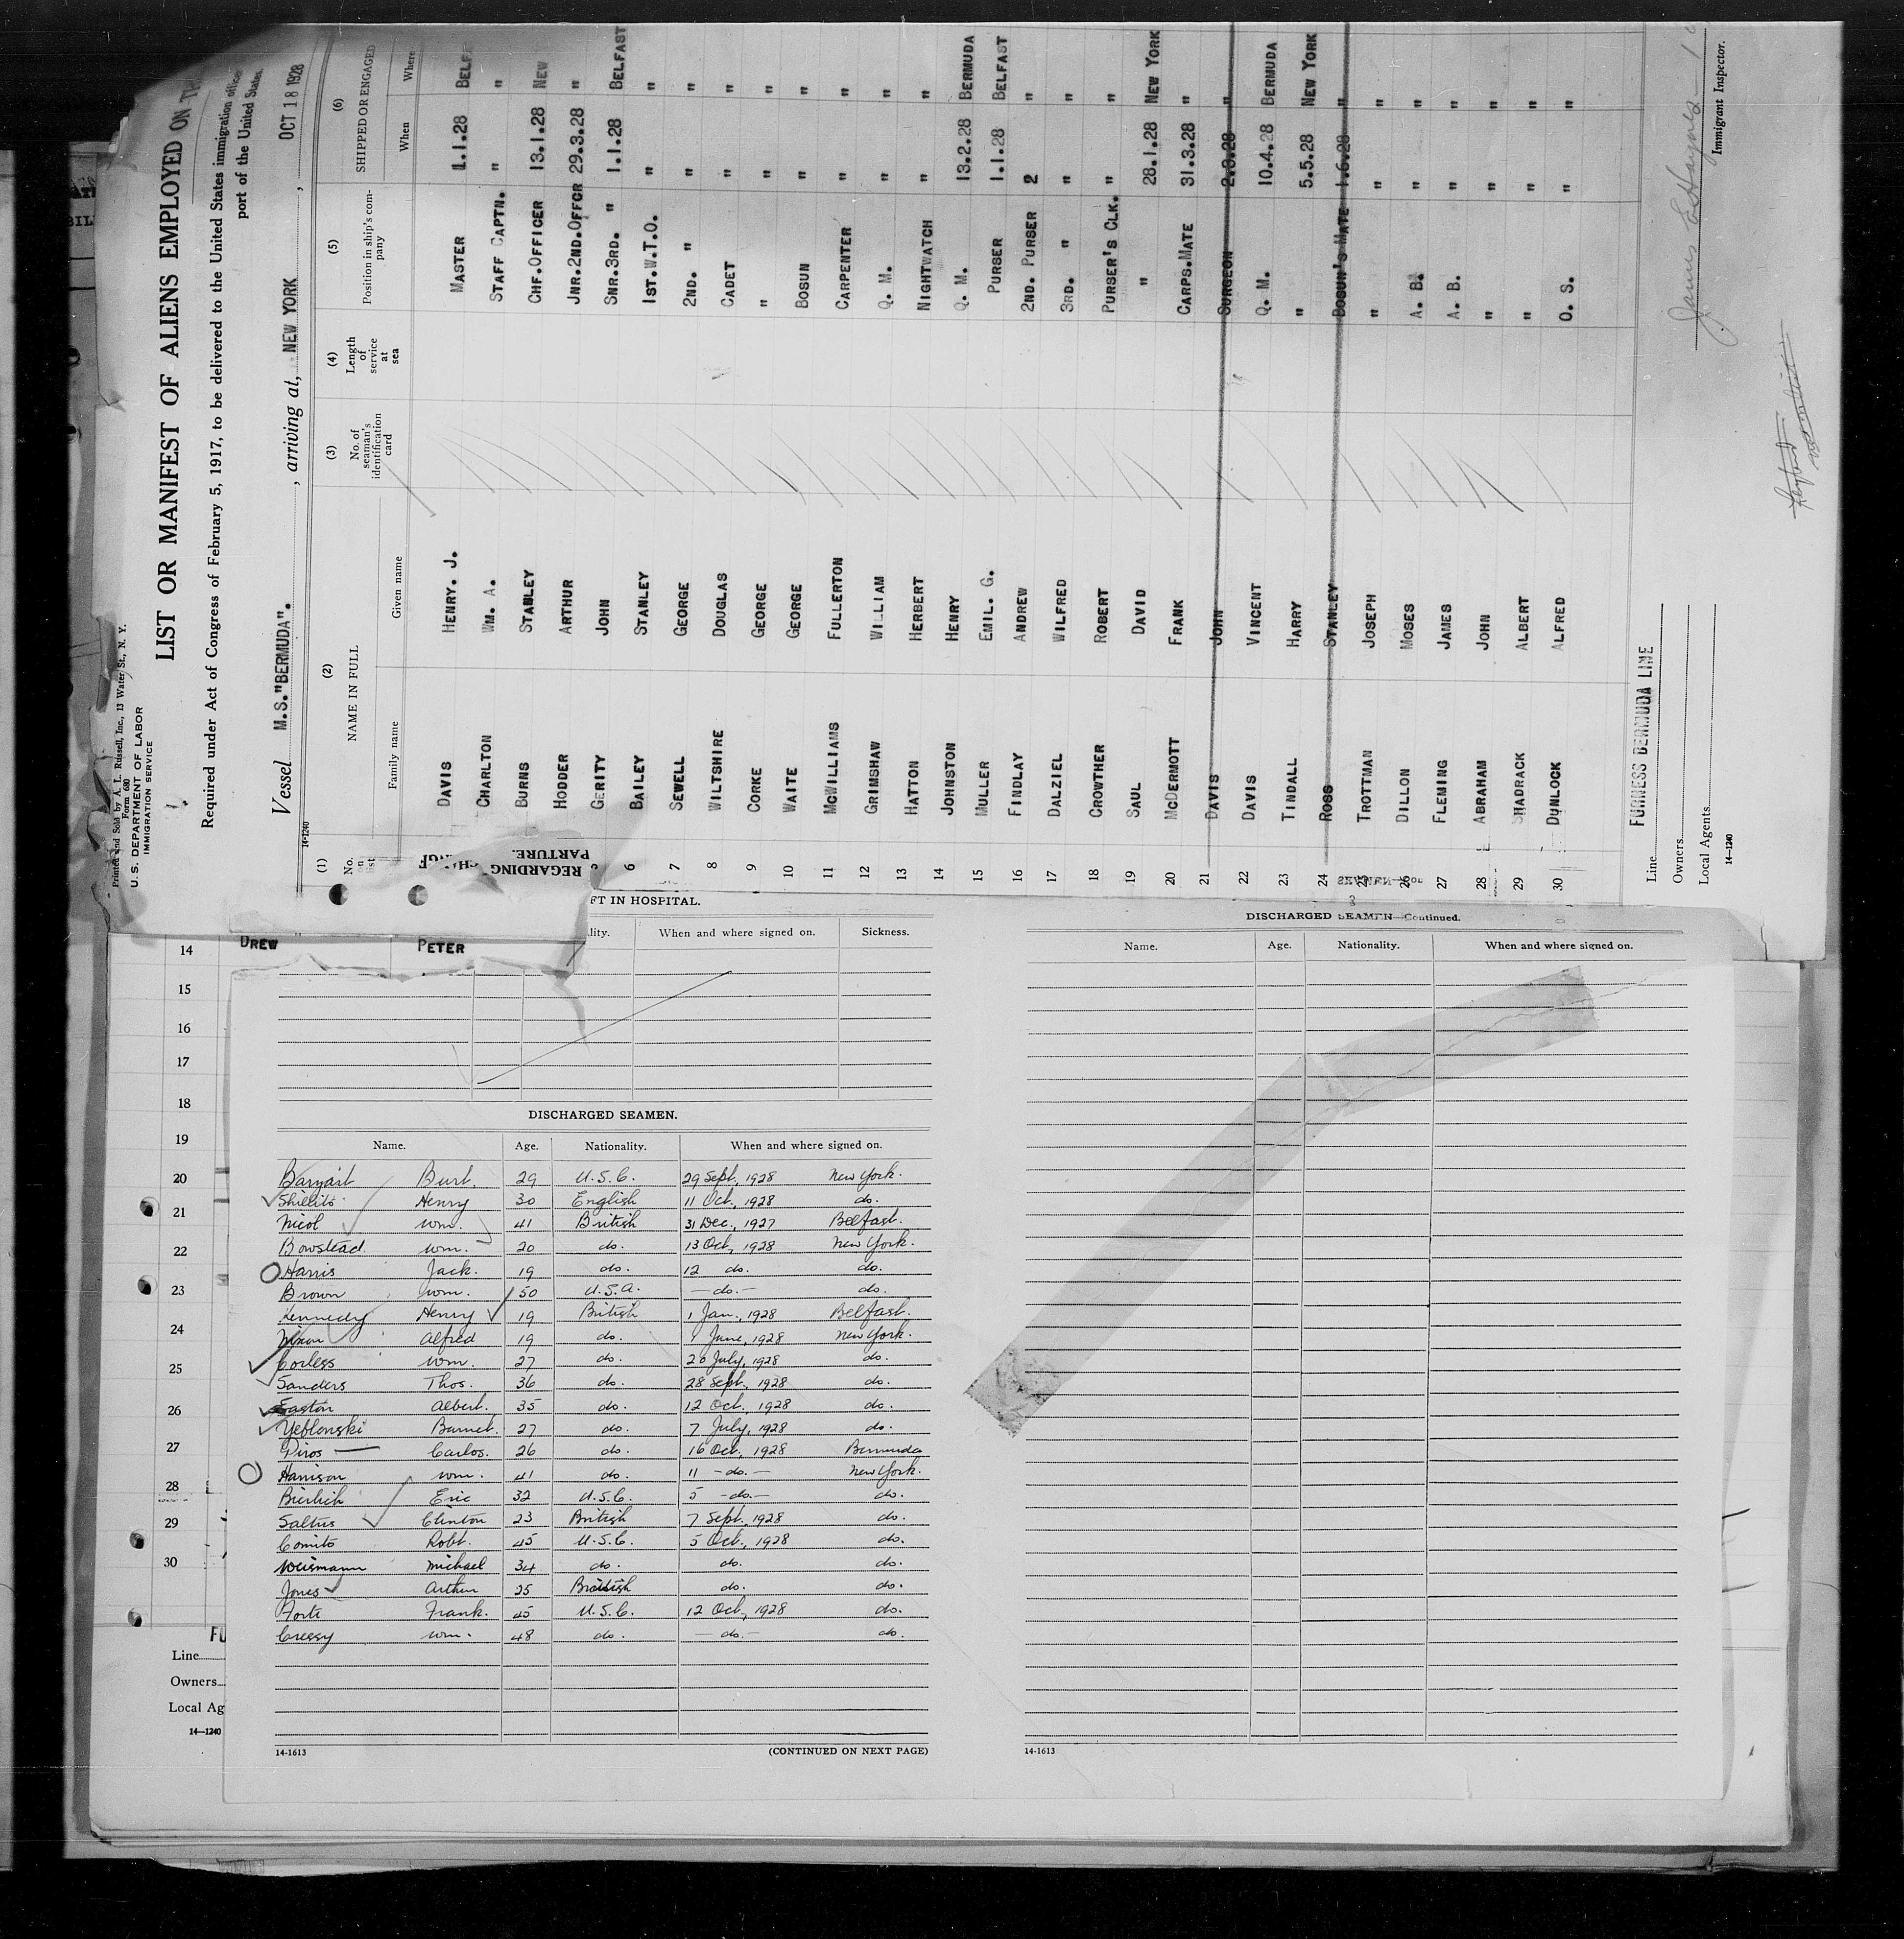 Printed and Sold by A. L. Russell, Inc., 13 Water St., N. Y.
Form 680
U. S. DEPARTMENT OF LABOR
IMMIGRATION SERVICE
LIST OR MANIFEST OF ALIENS EMPLOYED ON TH
Required under Act of Congress of February 5, 1917, to be delivered to the United States immigration officer
port of the United States.
Vessel M.S."BERMUDA". , arriving at, NEW YORK , OCT 18 1928
14-1240
(1) (2) (3) (4) (5) (6)
No. NAME IN FULL No. of seaman's identification card Length of service at sea Position in ship's company SHIPPED OR ENGAGED
Family name Given name When Where
DAVIS HENRY. J. MASTER 1.1.28 BELF
CHARLTON WM. A. STAFF CAPTN. " "
BURNS STANLEY CHF.OFFICER 13.1.28 NEW
HODDER ARTHUR JNR.2ND.OFFCR 29.3.28 "
GERITY JOHN SNR.3RD. " 1.1.28 BELFAST
6 BAILEY STANLEY 1ST.W.T.O. " "
7 SEWELL GEORGE 2ND. " " "
8 WILTSHIRE DOUGLAS CADET " "
9 CORKE GEORGE " " "
10 WAITE GEORGE BOSUN " "
11 MCWILLIAMS FULLERTON CARPENTER " "
12 GRIMSHAW WILLIAM Q. M. " "
13 HATTON HERBERT NIGHTWATCH " "
14 JOHNSTON HENRY Q. M. 13.2.28 BERMUDA
15 MULLER EMIL. G. PURSER 1.1.28 BELFAST
16 FINDLAY ANDREW 2ND. PURSER 2 "
17 DALZIEL WILFRED 3RD. " " "
18 CROWTHER ROBERT PURSER'S CLK. " "
19 SAUL DAVID " 28.1.28 NEW YORK
20 MCDERMOTT FRANK CARPS.MATE 31.3.28 "
21 DAVIS JOHN SURGEON 2.8.28 "
22 DAVIS VINCENT Q. M. 10.4.28 BERMUDA
23 TINDALL HARRY " 5.5.28 NEW YORK
24 ROSS STANLEY BOSUN'S MATE 1.6.28 "
25 TROTTMAN JOSEPH " " "
26 DILLON MOSES A. B. " "
27 FLEMING JAMES A. B. " "
28 ABRAHAM JOHN " " "
29 SHADRACK ALBERT " " "
30 DUNLOCK ALFRED O. S. " "
Line FURNESS BERMUDA LINE
Owners
Local Agents
14-1240
James E Haynes
Immigrant Inspector.
REGARDING CHANGE
PARTURE.
FT IN HOSPITAL.
lity. When and where signed on. Sickness.
14 DREW PETER
15
16
17
18
19
20
21
22
23
24
25
26
27
28
29
30
FU
Line
Owners
Local Ag
14-1240
DISCHARGED SEAMEN.
Name. Age. Nationality. When and where signed on.
Burt. 29 U.S.C. 29 Sept., 1928 New York.
Shields Henry 30 English 11 Oct., 1928 do.
Nicol Wm. 41 British 31 Dec., 1927 Belfast.
Bowstead Wm. 20 do. 13 Oct, 1928 New York.
Harris Jack. 19 do. 12 do. do.
Brown Wm. 50 U.S.A. —do.— do.
Kennedy Henry 19 British 1 Jan., 1928 Belfast.
Nixon Alfred 19 do. 1 June, 1928 New York.
Corless Wm. 27 do. 20 July, 1928 do.
Sanders Thos. 36 do. 28 Sept., 1928 do.
Easton Albert. 35 do. 12 Oct. 1928 do.
Yeblonski Barnet. 27 do. 7 July, 1928 do.
Piros Carlos. 26 do. 16 Oct., 1928 Bermuda
Harrison Wm. 41 do. 11 —do.— New York.
Eric 32 U.S.C. 5 —do.— do.
Saltus Clinton 23 British 7 Sept. 1928 do.
Comito Robt. 45 U.S.C. 5 Oct., 1928 do.
Weismann Michael 34 do. do. do.
Jones Arthur 25 British do. do.
Forte Frank. 45 U.S.C. 12 Oct, 1928 do.
Creesy Wm. 48 do. —do.— do.
14-1613 (CONTINUED ON NEXT PAGE)
DISCHARGED SEAMEN—Continued.
Name. Age. Nationality. When and where signed on.
14-1613